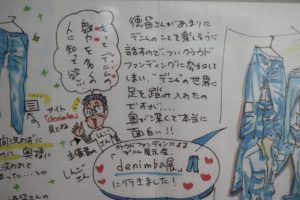 徳留さんがあまりに
デニムのことを楽しそうに
話すので、ついクラウド
ファンディングに参加して
しまい、"デニム"の世界に
足を踏み入れたの
ですが...
奥が深くて本当に
面白い!!
もっとデニムの
魅力を多くの
人に知って欲しい
サイト
「denimba」
見てね
主催者の
しんごさん
クラウドファンディングによる
デニム展示会
「denimba展」
に行きました!